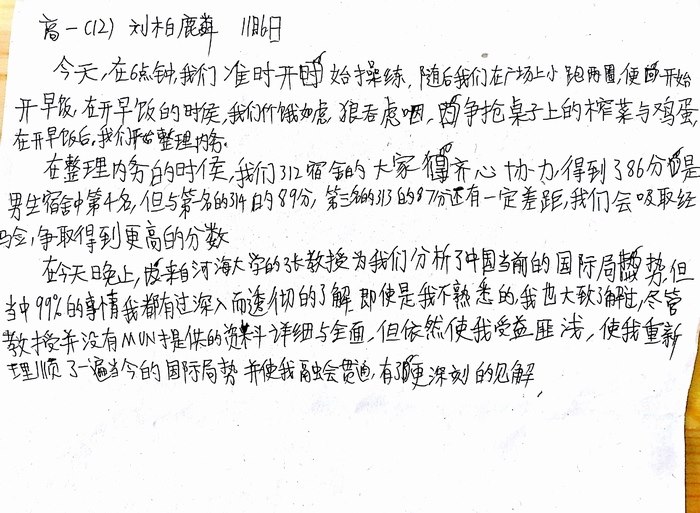 高一(12) 刘柏鹿粦 11月6日
今天,在6点钟,我们准时开始操练,随后我们在广场上小跑两圈,便开始
开早饭,在开早饭的时侯,我们个个饿如虎,狼吞虎咽,争抢桌子上的榨菜与鸡蛋,
在开早饭后,我们开始整理内务。
在整理内务的时侯,我们312宿舍的大家齐心协力,得到了86分,是
男生宿舍中第4名,但与第一名的314的89分,第三名的313的87分还有一定差距,我们会吸取经
验,争取得到更高的分数
在今天晚上,来自河海大学的张教授为我们分析了中国当前的国际局势,但
当中99%的事情我都有过深入而透彻的了解,即使是我不熟悉的,我也大致了解过,尽管
教授并没有MUN提供的资料详细与全面,但依然使我受益匪浅,使我重新
理顺了一遍当今的国际局势并使我融会贯通,有了更深刻的见解.